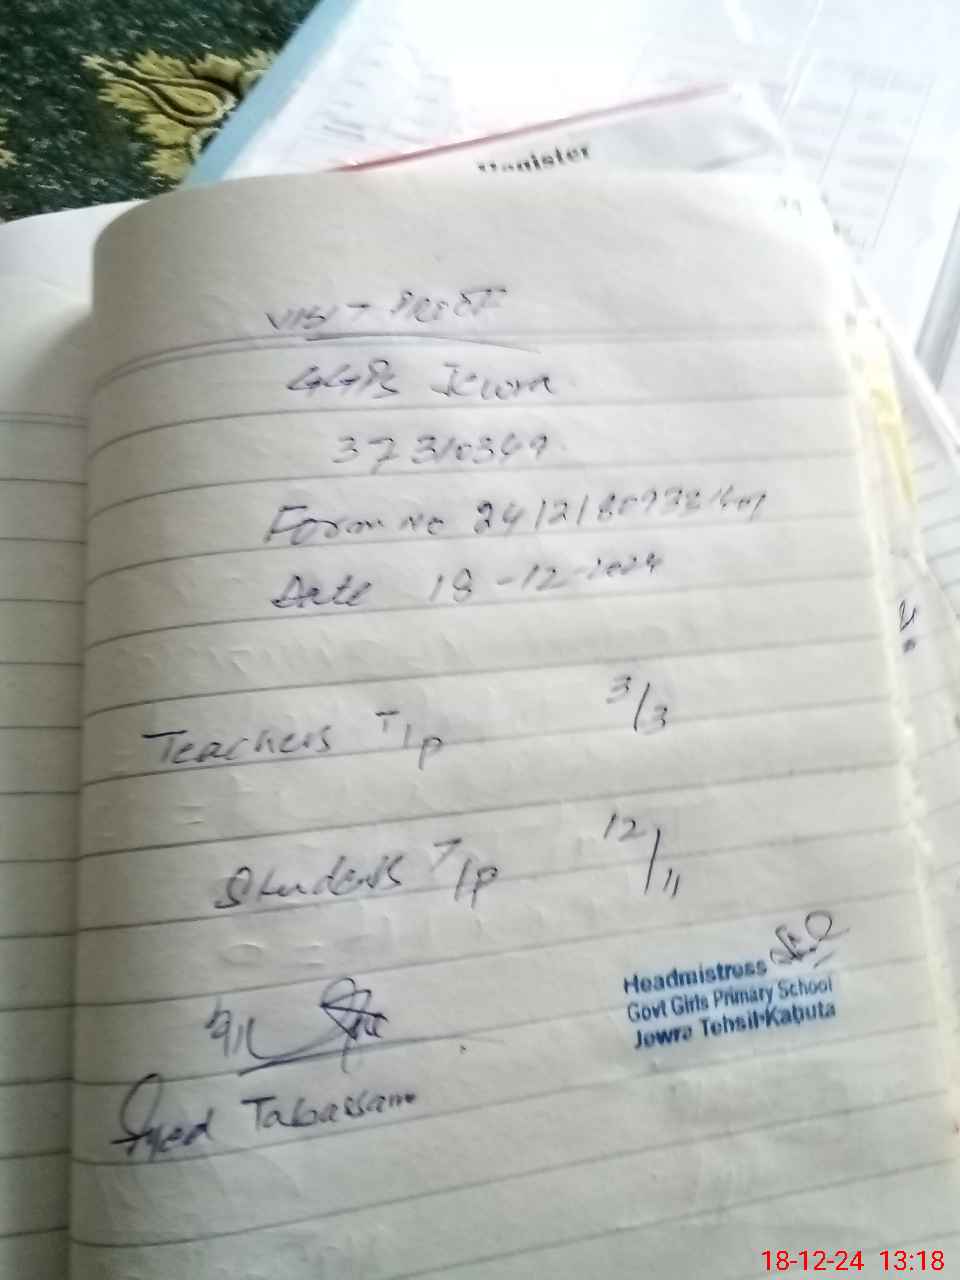 Register
VISIT PROOF
GGPS Jewra
37310349
Form no
Date 18-12-2024
Teachers T/p 3/3
Students T/p 12/11
Headmistress
Govt Girls Primary School
Jewra Tehsil Kahuta
Syed Tabassam
18-12-24 13:18